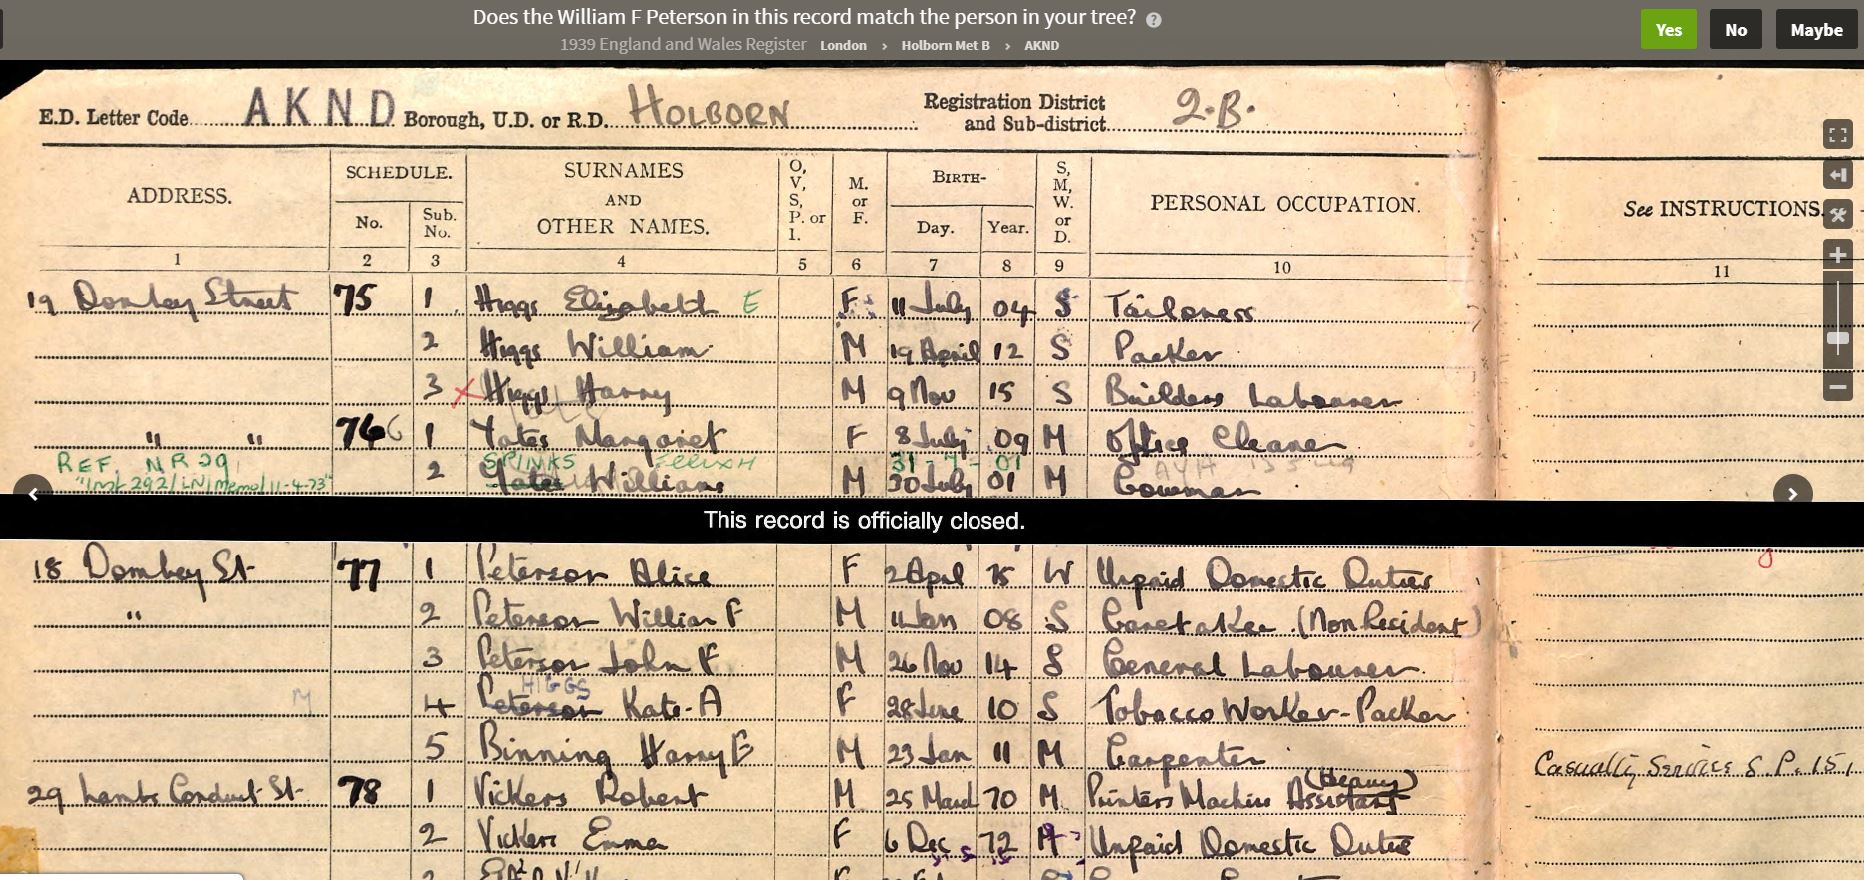 Does the William F Peterson in this record match the person in your tree? ?
Yes No Maybe
1939 England and Wales Register London > Holborn Met B > AKND
E.D. Letter Code AKND Borough, U.D. or R.D. HOLBORN Registration District and Sub-district 2.B.
ADDRESS. SCHEDULE. No. Sub. No. SURNAMES AND OTHER NAMES. O, V, S, P. or I. M. or F. BIRTH- Day. Year. S, M, W. or D. PERSONAL OCCUPATION. See INSTRUCTIONS.
1 2 3 4 5 6 7 8 9 10 11
19 Dombey Street 75 1 Higgs Elizabeth E F 11 July 04 S Tailoress
2 Higgs William M 19 April 12 S Packer
3 X Higgs Harry M 9 Nov 15 S Builders Labourer
" " 76 6 1 Yates Margaret F 8 July 09 M Office Cleaner
REF. NR 29 SPINKS 31-7-01
2 Yates William M 30 July 01 M Cowman
This record is officially closed.
18 Dombey St 77 1 Peterson Alice F 2 April 75 W Unpaid Domestic Duties
" 2 Peterson William F M 11 Jan 08 S Caretaker (Non Resident)
3 Peterson John F M 26 Nov 14 S General Labourer
HIGGS
M 4 Peterson Kate-A F 28 June 10 S Tobacco Worker-Packer
5 Binning Harry E M 23 Jan 11 M Carpenter Casualty Service S.P. 151
29 Lambs Conduit St 78 1 Vickers Robert M 25 March 70 M Printers Machine Assistant (Heavy)
2 Vickers Emma F 6 Dec 72 M Unpaid Domestic Duties